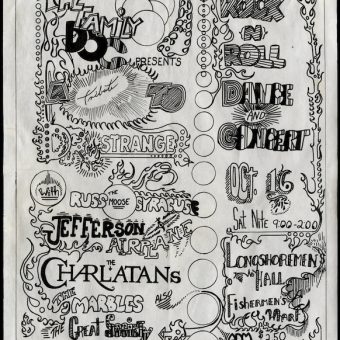 THE
FAMILY
DOG
PRESENTS
A Tribute TO
DR. STRANGE
With
RUSS THE MOOSE SYRACUSE
JEFFERSON
AIRPLANE
THE
CHARLATANS
THE
MARBLES
ALSO
THE Great Society
ROCK
N
ROLL
DANCE
AND
CONCERT
OCT. 16
Sat Nite 9:00-2:00
LONGSHOREMENS
HALL
Fishermen's
Wharf
ADM 2.50